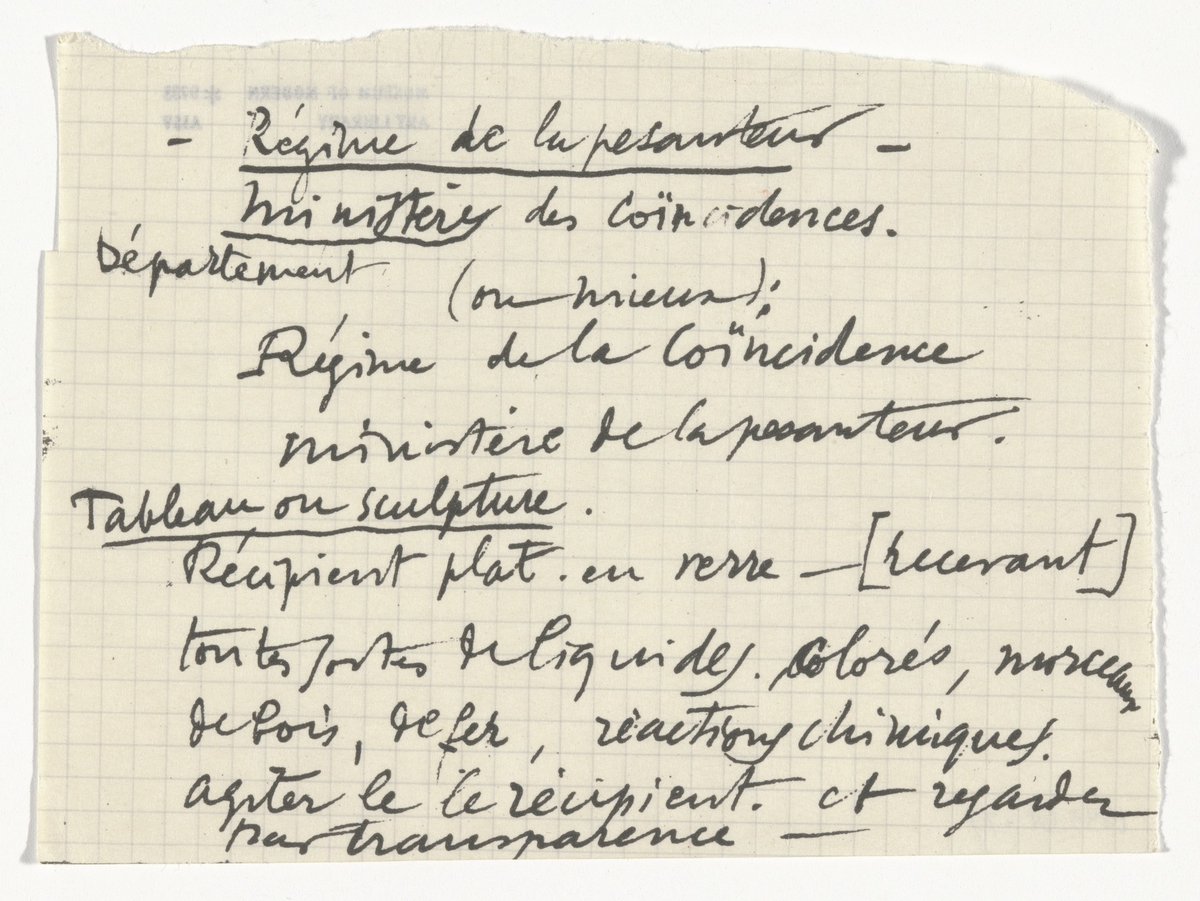 - Régime de la pesanteur -
Ministères des Coïncidences.
Département
(ou mieux):
Régime de la Coïncidence
ministère de la pesanteur.
Tableau ou sculpture.
Récipient plat. en verre — [recevant]
toutes sortes de liquides. colorés, morceaux
de bois, de fer, réactions chimiques.
agiter le le récipient. et regarder
par transparence —